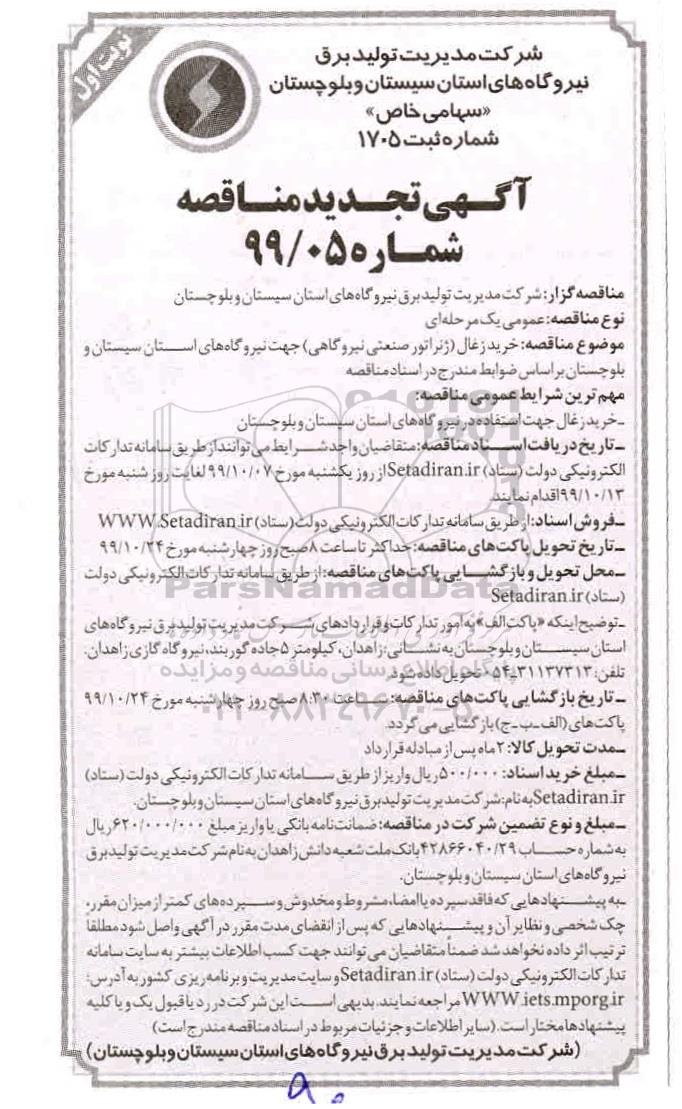 نوبت اول
شرکت مدیریت تولید برق
نیروگاه های استان سیستان و بلوچستان
«سهامی خاص»
شماره ثبت ۱۷۰۵
آگهی تجدید مناقصه
شماره ۹۹/۰۵
مناقصه گزار: شرکت مدیریت تولید برق نیروگاه های استان سیستان و بلوچستان
نوع مناقصه: عمومی یک مرحله ای
موضوع مناقصه: خرید زغال (ژنراتور صنعتی نیروگاهی) جهت نیروگاه های استان سیستان و
بلوچستان بر اساس ضوابط مندرج در اسناد مناقصه
مهم ترین شرایط عمومی مناقصه:
ـ خرید زغال جهت استفاده در نیروگاه های استان سیستان و بلوچستان
ـ تاریخ دریافت اسناد مناقصه: متقاضیان واجد شرایط می توانند از طریق سامانه تدارکات
الکترونیکی دولت (ستاد) Setadiran.ir از روز یکشنبه مورخ ۹۹/۱۰/۰۷ لغایت روز شنبه مورخ
۹۹/۱۰/۱۳ اقدام نمایند.
ـ فروش اسناد: از طریق سامانه تدارکات الکترونیکی دولت (ستاد) WWW.Setadiran.ir
ـ تاریخ تحویل پاکت های مناقصه: حداکثر تا ساعت ۸ صبح روز چهارشنبه مورخ ۹۹/۱۰/۲۴
ـ محل تحویل و بازگشایی پاکت های مناقصه: از طریق سامانه تدارکات الکترونیکی دولت
(ستاد) Setadiran.ir
ـ توضیح اینکه «پاکت الف» به امور تدارکات و قراردادهای شرکت مدیریت تولید برق نیروگاه های
استان سیستان و بلوچستان به نشانی: زاهدان، کیلومتر ۵ جاده گوربند، نیروگاه گازی زاهدان.
تلفن: ۳۱۱۳۷۳۱۳-۰۵۴ تحویل داده شود.
ـ تاریخ بازگشایی پاکت های مناقصه: ساعت ۸:۳۰ صبح روز چهارشنبه مورخ ۹۹/۱۰/۲۴
پاکت های (الف-ب-ج) بازگشایی می گردد.
ـ مدت تحویل کالا: ۲ ماه پس از مبادله قرارداد
ـ مبلغ خرید اسناد: ۵۰۰/۰۰۰ ریال واریز از طریق سامانه تدارکات الکترونیکی دولت (ستاد)
Setadiran.ir به نام: شرکت مدیریت تولید برق نیروگاه های استان سیستان و بلوچستان.
ـ مبلغ و نوع تضمین شرکت در مناقصه: ضمانت نامه بانکی یا واریز مبلغ ۶۲۰/۰۰۰/۰۰۰ ریال
به شماره حساب ۴۲۸۶۶۰۴۰/۲۹ بانک ملت شعبه دانش زاهدان به نام شرکت مدیریت تولید برق
نیروگاه های استان سیستان و بلوچستان.
ـ به پیشنهادهایی که فاقد سپرده یا امضا، مشروط و مخدوش و سپرده های کمتر از میزان مقرر،
چک شخصی و نظایر آن و پیشنهادهایی که پس از انقضای مدت مقرر در آگهی واصل شود مطلقا
ترتیب اثر داده نخواهد شد ضمناً متقاضیان می توانند جهت کسب اطلاعات بیشتر به سایت سامانه
تدارکات الکترونیکی دولت (ستاد) Setadiran.ir و سایت مدیریت و برنامه ریزی کشور به آدرس:
WWW.iets.mporg.ir مراجعه نمایند. بدیهی است این شرکت در رد یا قبول یک و یا کلیه
پیشنهادها مختار است. (سایر اطلاعات و جزئیات مربوط در اسناد مناقصه مندرج است)
(شرکت مدیریت تولید برق نیروگاه های استان سیستان و بلوچستان)
ParsNamadData
پایگاه اطلاع رسانی مناقصه و مزایده
۰۲۱-۸۸۳۴۹۶۷۰-۵
۹۰